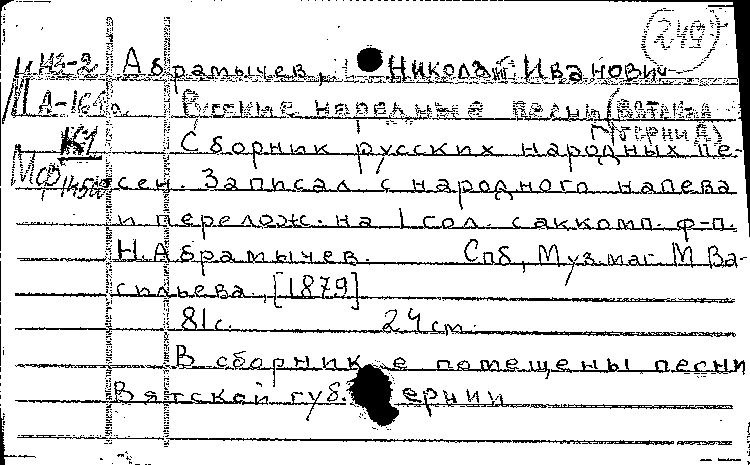 249
Н3-2 Абрамычев, Николай Иванович
М А-161а Русские народные песни (Вятская губерния)
К1 Сборник русских народных пе-
Мф сен. Записал с народного напева
и перелож. на 1 гол. с аккомп. ф-п.
Н. Абрамычев. Спб, Муз. маг. М Ва-
сильева, [1879]
81 с. 24 см.
В сборнике помещены песни
Вятской губернии